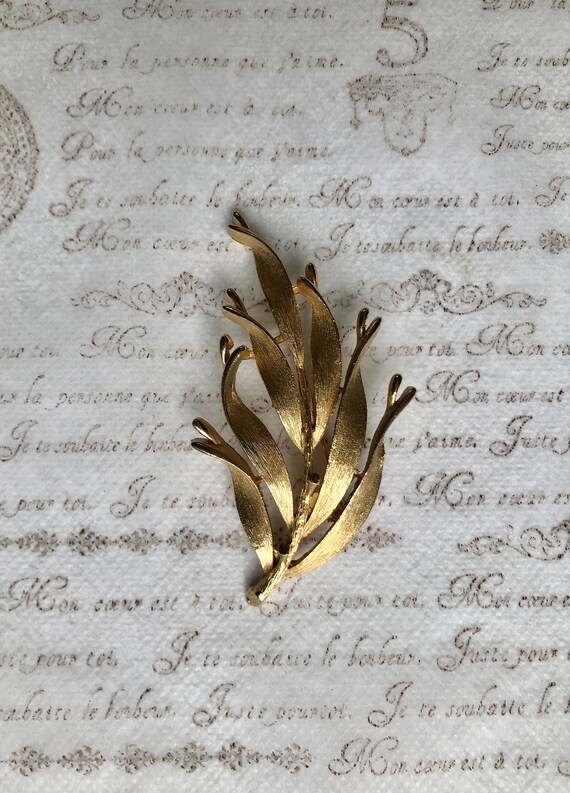 Mon cœur est à toi.
5
à Pour la
Pour la personne que j'aime.
Je te souh
Mon cœur est à toi.
Mon cœur est
Pour la personne que j'aime.
Juste pour
Je te souhaite le bonheur. Mon cœur est à toi. Je
Mon cœur est à toi. Je te souhaite le bonheur.
toi. Mon cœur pour toi. Mon cœur
la personne que j'aime. Juste Mon cœur est
Je te souhaite le bonheur que j'aime. Juste
pour toi. Je te souhaite Mon cœur est à
Mon cœur est à toi. Juste pour toi. Mon cœur est
Juste pour toi. Je te souhaite le bonheur. Juste pour
souhaite le bonheur. Juste pour toi. Je te souhaite le b
Mon cœur est à toi.